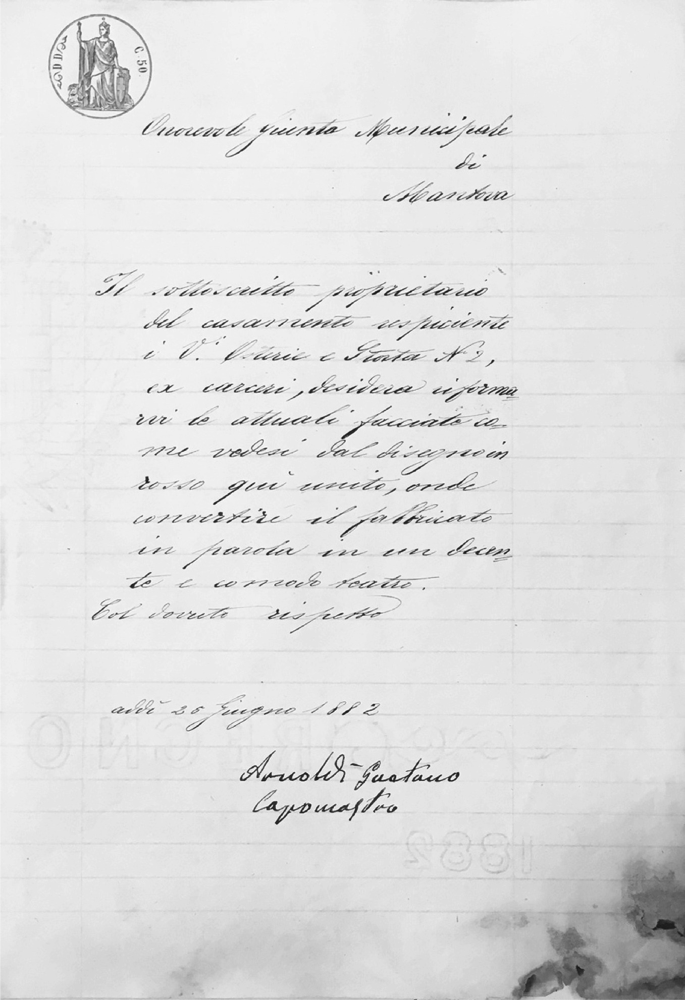 C. 50
Onorevole Giunta Municipale
di
Mantova
Il sottoscritto proprietario
del casamento respiciente
i V.i Osterie e Storta N° 2,
ex carceri, desidera riforma-
rvi le attuali facciate co-
me vedesi dal disegno in
rosso qui unito, onde
convertire il fabbricato
in parola in un decen-
te e comodo teatro.
Col dovuto rispetto
addì 26 Giugno 1882
Arnoldi Gaetano
Capomastro
1882